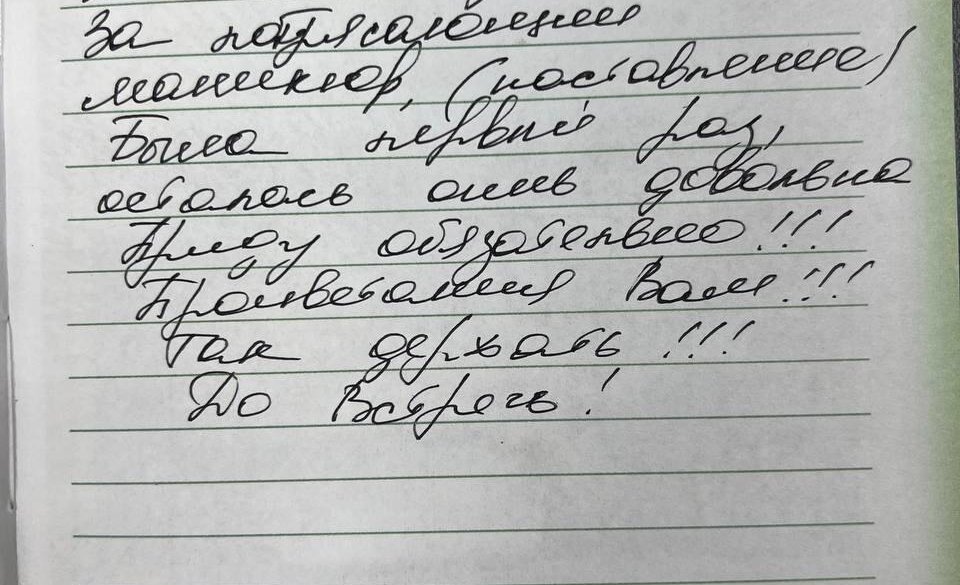 За потрясающий
маникюр, (наставление)
Была первый раз,
осталась очень довольна
Приду обязательно!!!
Процветания Вам!!!
Так держать!!!
До Встречь!